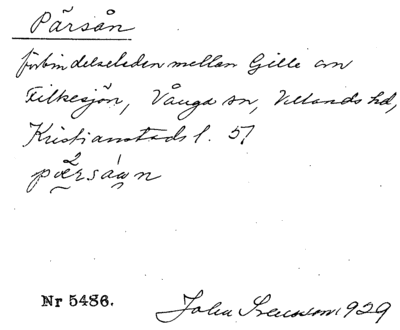 Pärsån
förbindelseleden mellan Gille ån
Filkesjön, Vånga sn, Villands hd,
Kristianstads l. 5!
Nr 5486. John Svensson 1929